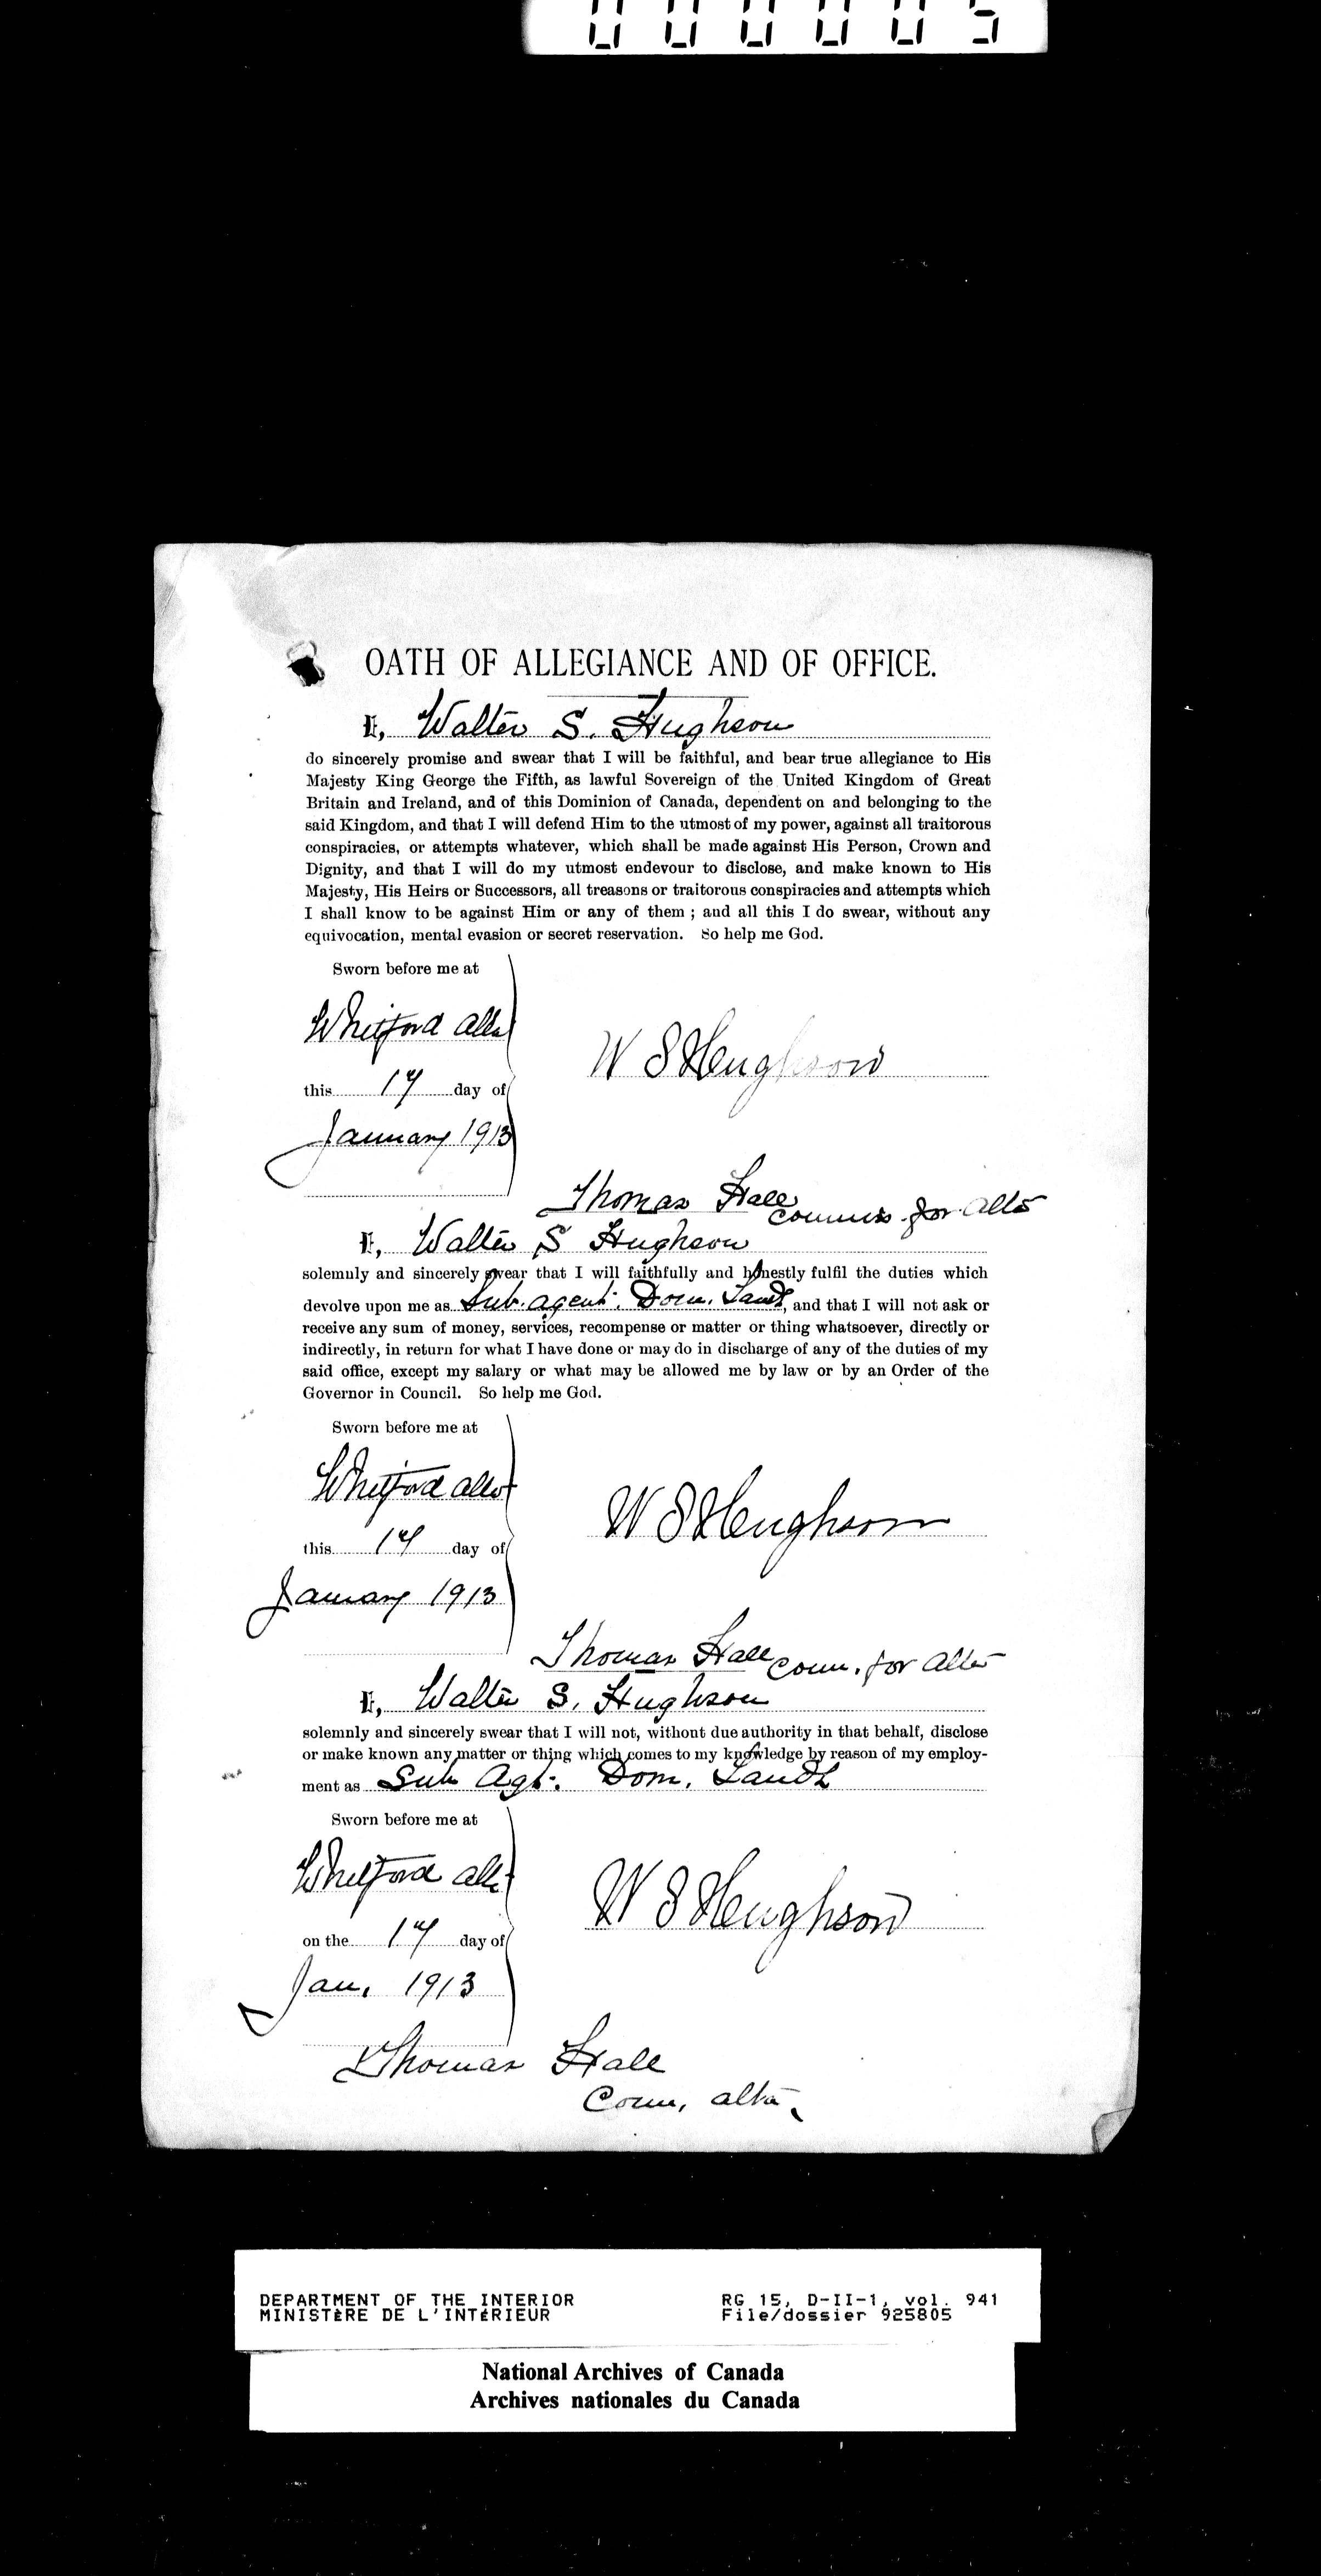 000005
OATH OF ALLEGIANCE AND OF OFFICE.
I, Walter S. Hughson
do sincerely promise and swear that I will be faithful, and bear true allegiance to His
Majesty King George the Fifth, as lawful Sovereign of the United Kingdom of Great
Britain and Ireland, and of this Dominion of Canada, dependent on and belonging to the
said Kingdom, and that I will defend Him to the utmost of my power, against all traitorous
conspiracies, or attempts whatever, which shall be made against His Person, Crown and
Dignity, and that I will do my utmost endevour to disclose, and make known to His
Majesty, His Heirs or Successors, all treasons or traitorous conspiracies and attempts which
I shall know to be against Him or any of them ; and all this I do swear, without any
equivocation, mental evasion or secret reservation. So help me God.
Sworn before me at
Whitford Alta
W S Hughson
this 14 day of
January 1913
Thomas Hall
Commis. for Alta
I, Walter S Hughson
solemnly and sincerely swear that I will faithfully and honestly fulfil the duties which
devolve upon me as Sub. agent. Dom. Lands, and that I will not ask or
receive any sum of money, services, recompense or matter or thing whatsoever, directly or
indirectly, in return for what I have done or may do in discharge of any of the duties of my
said office, except my salary or what may be allowed me by law or by an Order of the
Governor in Council. So help me God.
Sworn before me at
Whitford Alta
W S Hughson
this 14 day of
January 1913
Thomas Hall
Com. for Alta
I, Walter S. Hughson
solemnly and sincerely swear that I will not, without due authority in that behalf, disclose
or make known any matter or thing which comes to my knowledge by reason of my employ-
ment as Sub Agt. Dom. Lands
Sworn before me at
Whitford Alta
W S Hughson
on the 14 day of
Jan. 1913
Thomas Hall
Com. Alta.
DEPARTMENT OF THE INTERIOR RG 15, D-II-1, vol. 941
MINISTÈRE DE L'INTÉRIEUR File/dossier 925805
National Archives of Canada
Archives nationales du Canada